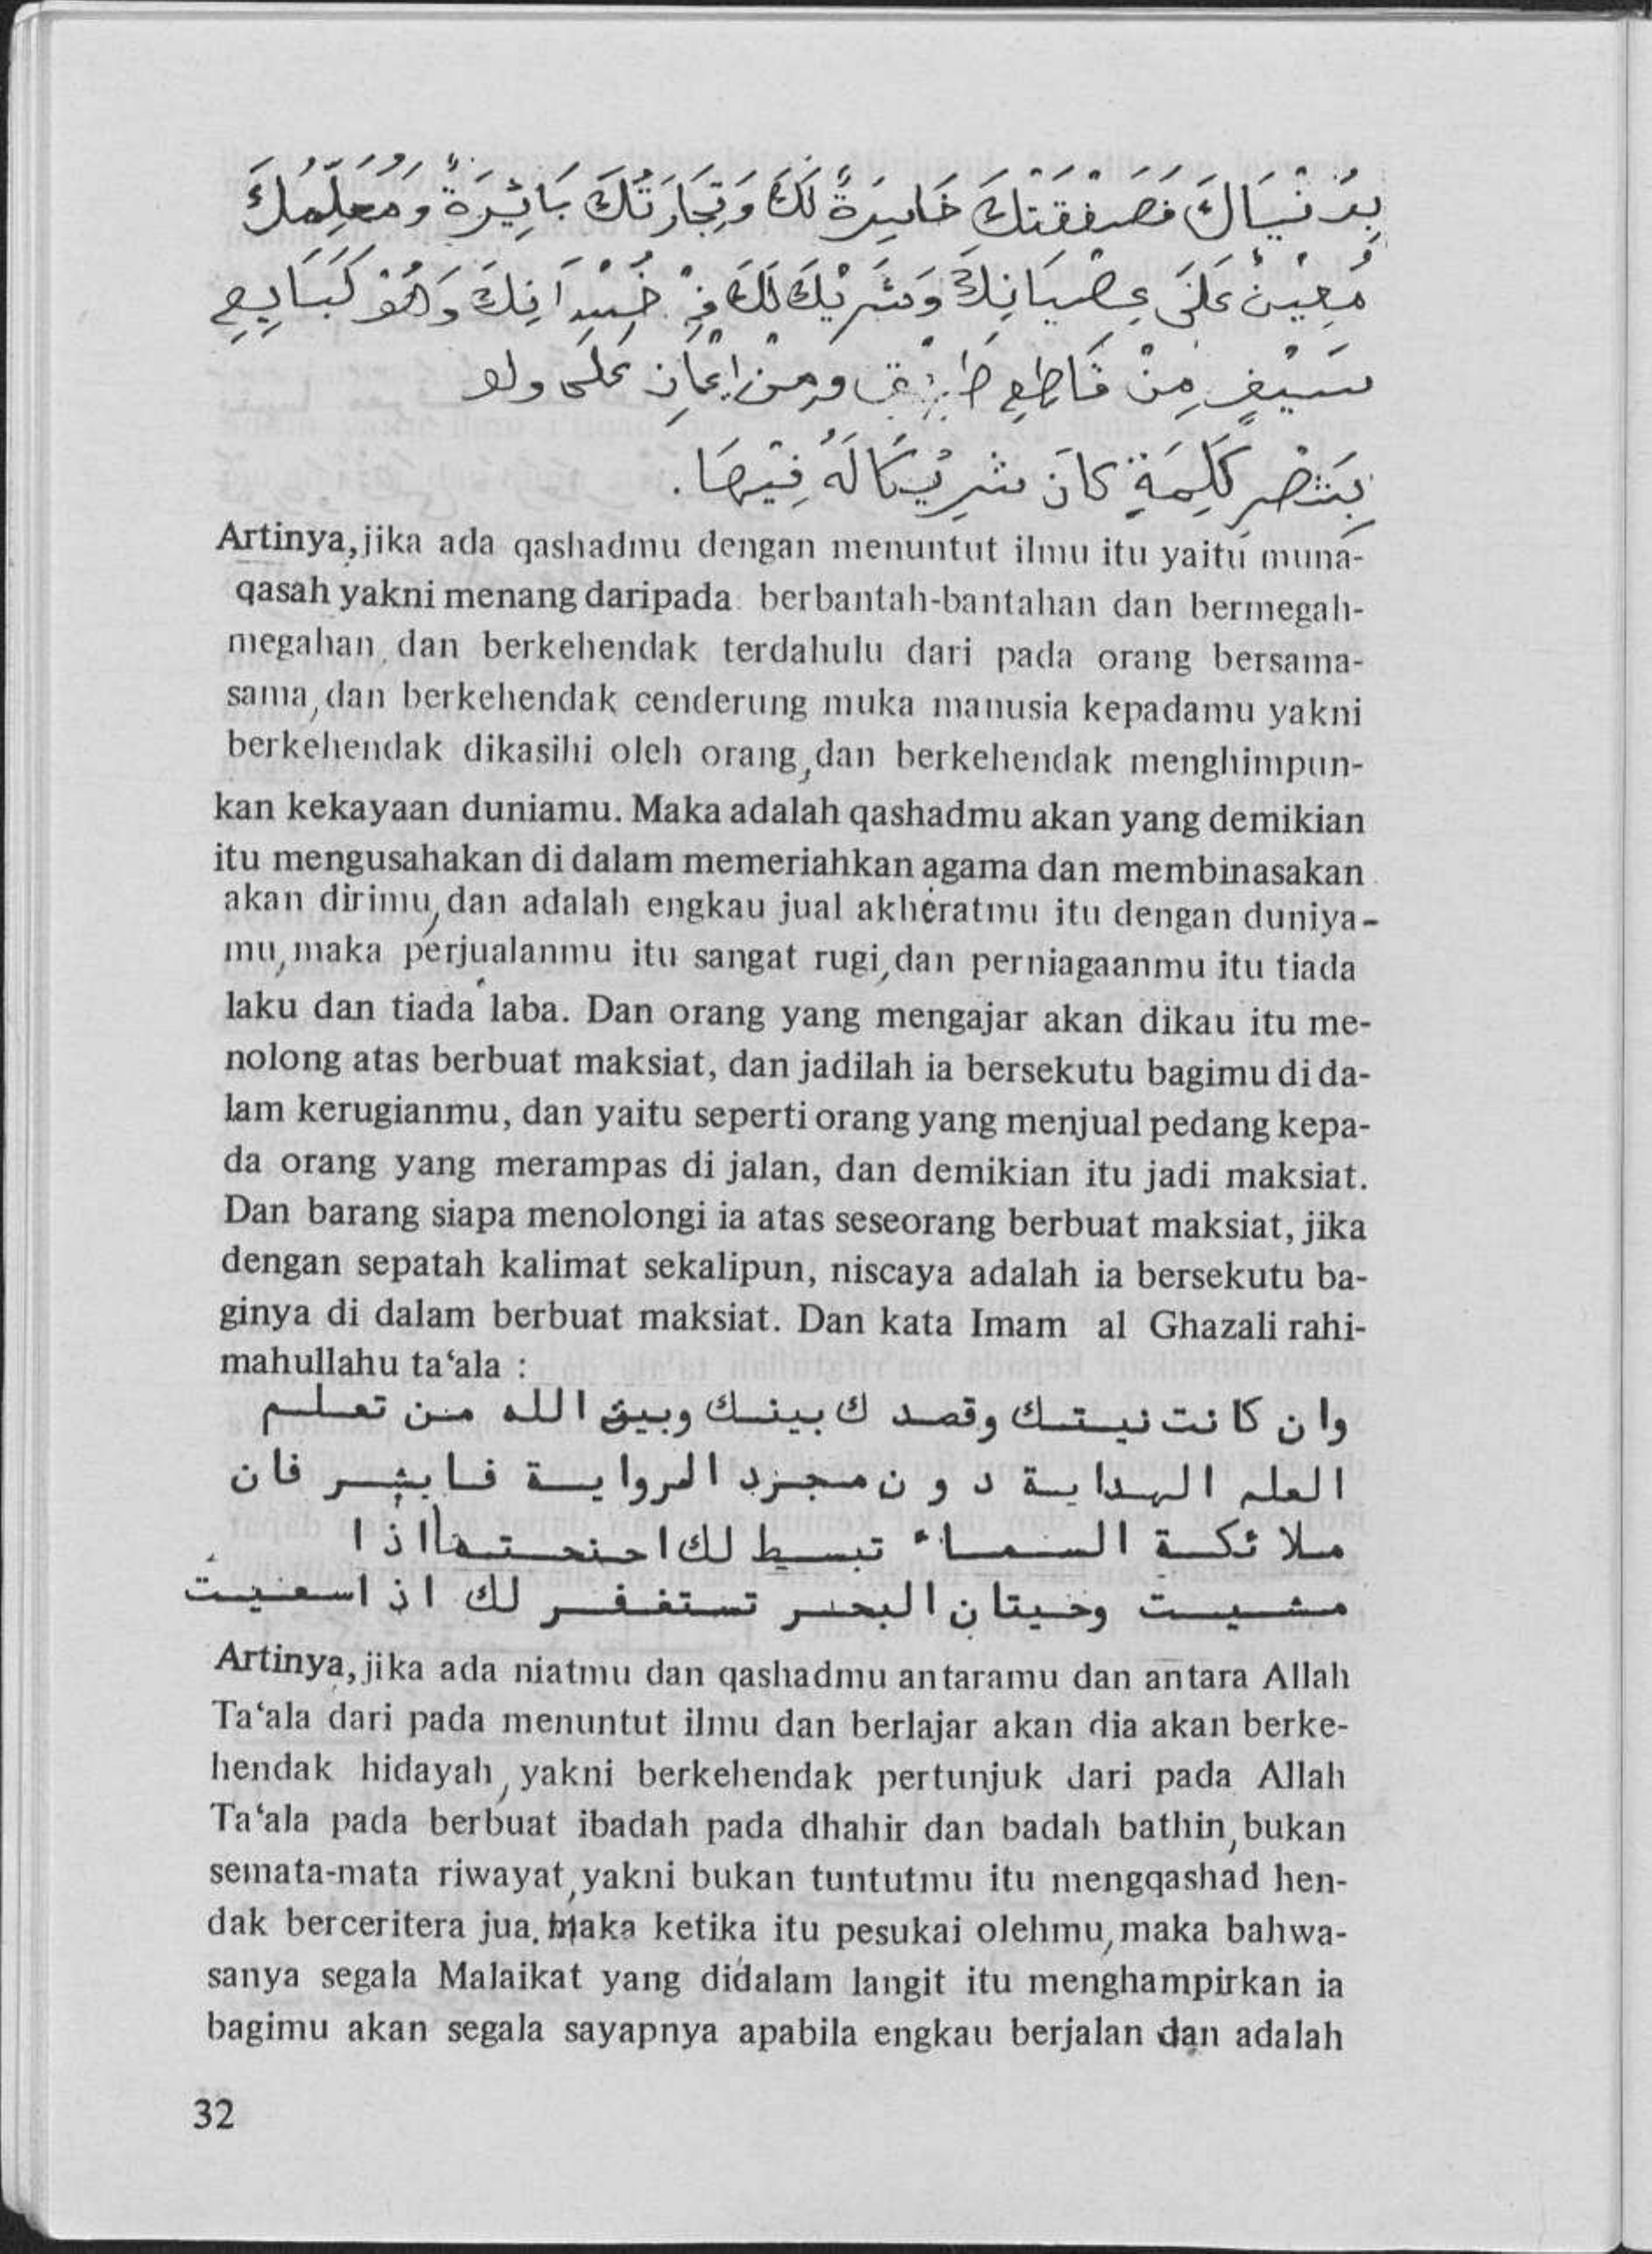 بِدُنْيَاكَ فَصَفْقَتُكَ خَاسِرَةً لَكَ وَتِجَارَتُكَ بَائِرَةً وَمُعَلِّمُكَ
مُعِيْنٌ عَلَى عِصْيَانِكَ وَشَرِيْكَ لَكَ فِيْ خُسْرَانِكَ وَهُوَ كَبَايِعِ
سَيْفٍ مِنْ قَاطِعِ طَرِيْقٍ وَمَنْ اِعَانَ عَلَى ولو
بِشَطْرِ كَلِمَةٍ كَانَ شَرِيْكًا لَهُ فِيْهَا.
Artinya, jika ada qashadmu dengan menuntut ilmu itu yaitu muna-
qasah yakni menang daripada berbantah-bantahan dan bermegah-
megahan, dan berkehendak terdahulu dari pada orang bersama-
sama, dan berkehendak cenderung muka manusia kepadamu yakni
berkehendak dikasihi oleh orang, dan berkehendak menghimpun-
kan kekayaan duniamu. Maka adalah qashadmu akan yang demikian
itu mengusahakan di dalam memeriahkan agama dan membinasakan
akan dirimu, dan adalah engkau jual akheratmu itu dengan duniya-
mu, maka perjualanmu itu sangat rugi, dan perniagaanmu itu tiada
laku dan tiada laba. Dan orang yang mengajar akan dikau itu me-
nolong atas berbuat maksiat, dan jadilah ia bersekutu bagimu di da-
lam kerugianmu, dan yaitu seperti orang yang menjual pedang kepa-
da orang yang merampas di jalan, dan demikian itu jadi maksiat.
Dan barang siapa menolongi ia atas seseorang berbuat maksiat, jika
dengan sepatah kalimat sekalipun, niscaya adalah ia bersekutu ba-
ginya di dalam berbuat maksiat. Dan kata Imam al Ghazali rahi-
mahullahu ta‘ala :
وان كانت نيتك وقصدك بينك وبين الله من تعلم
العلم الهداية دون مجرد الرواية فابشر فان
ملائكة السماء تبسط لك اجنحتها اذا
مشيت وحيتان البحر تستغفر لك اذا سعيت
Artinya, jika ada niatmu dan qashadmu antaramu dan antara Allah
Ta‘ala dari pada menuntut ilmu dan berlajar akan dia akan berke-
hendak hidayah, yakni berkehendak pertunjuk dari pada Allah
Ta‘ala pada berbuat ibadah pada dhahir dan badah bathin, bukan
semata-mata riwayat, yakni bukan tuntutmu itu mengqashad hen-
dak berceritera jua. Maka ketika itu pesukai olehmu, maka bahwa-
sanya segala Malaikat yang didalam langit itu menghampirkan ia
bagimu akan segala sayapnya apabila engkau berjalan dan adalah
32